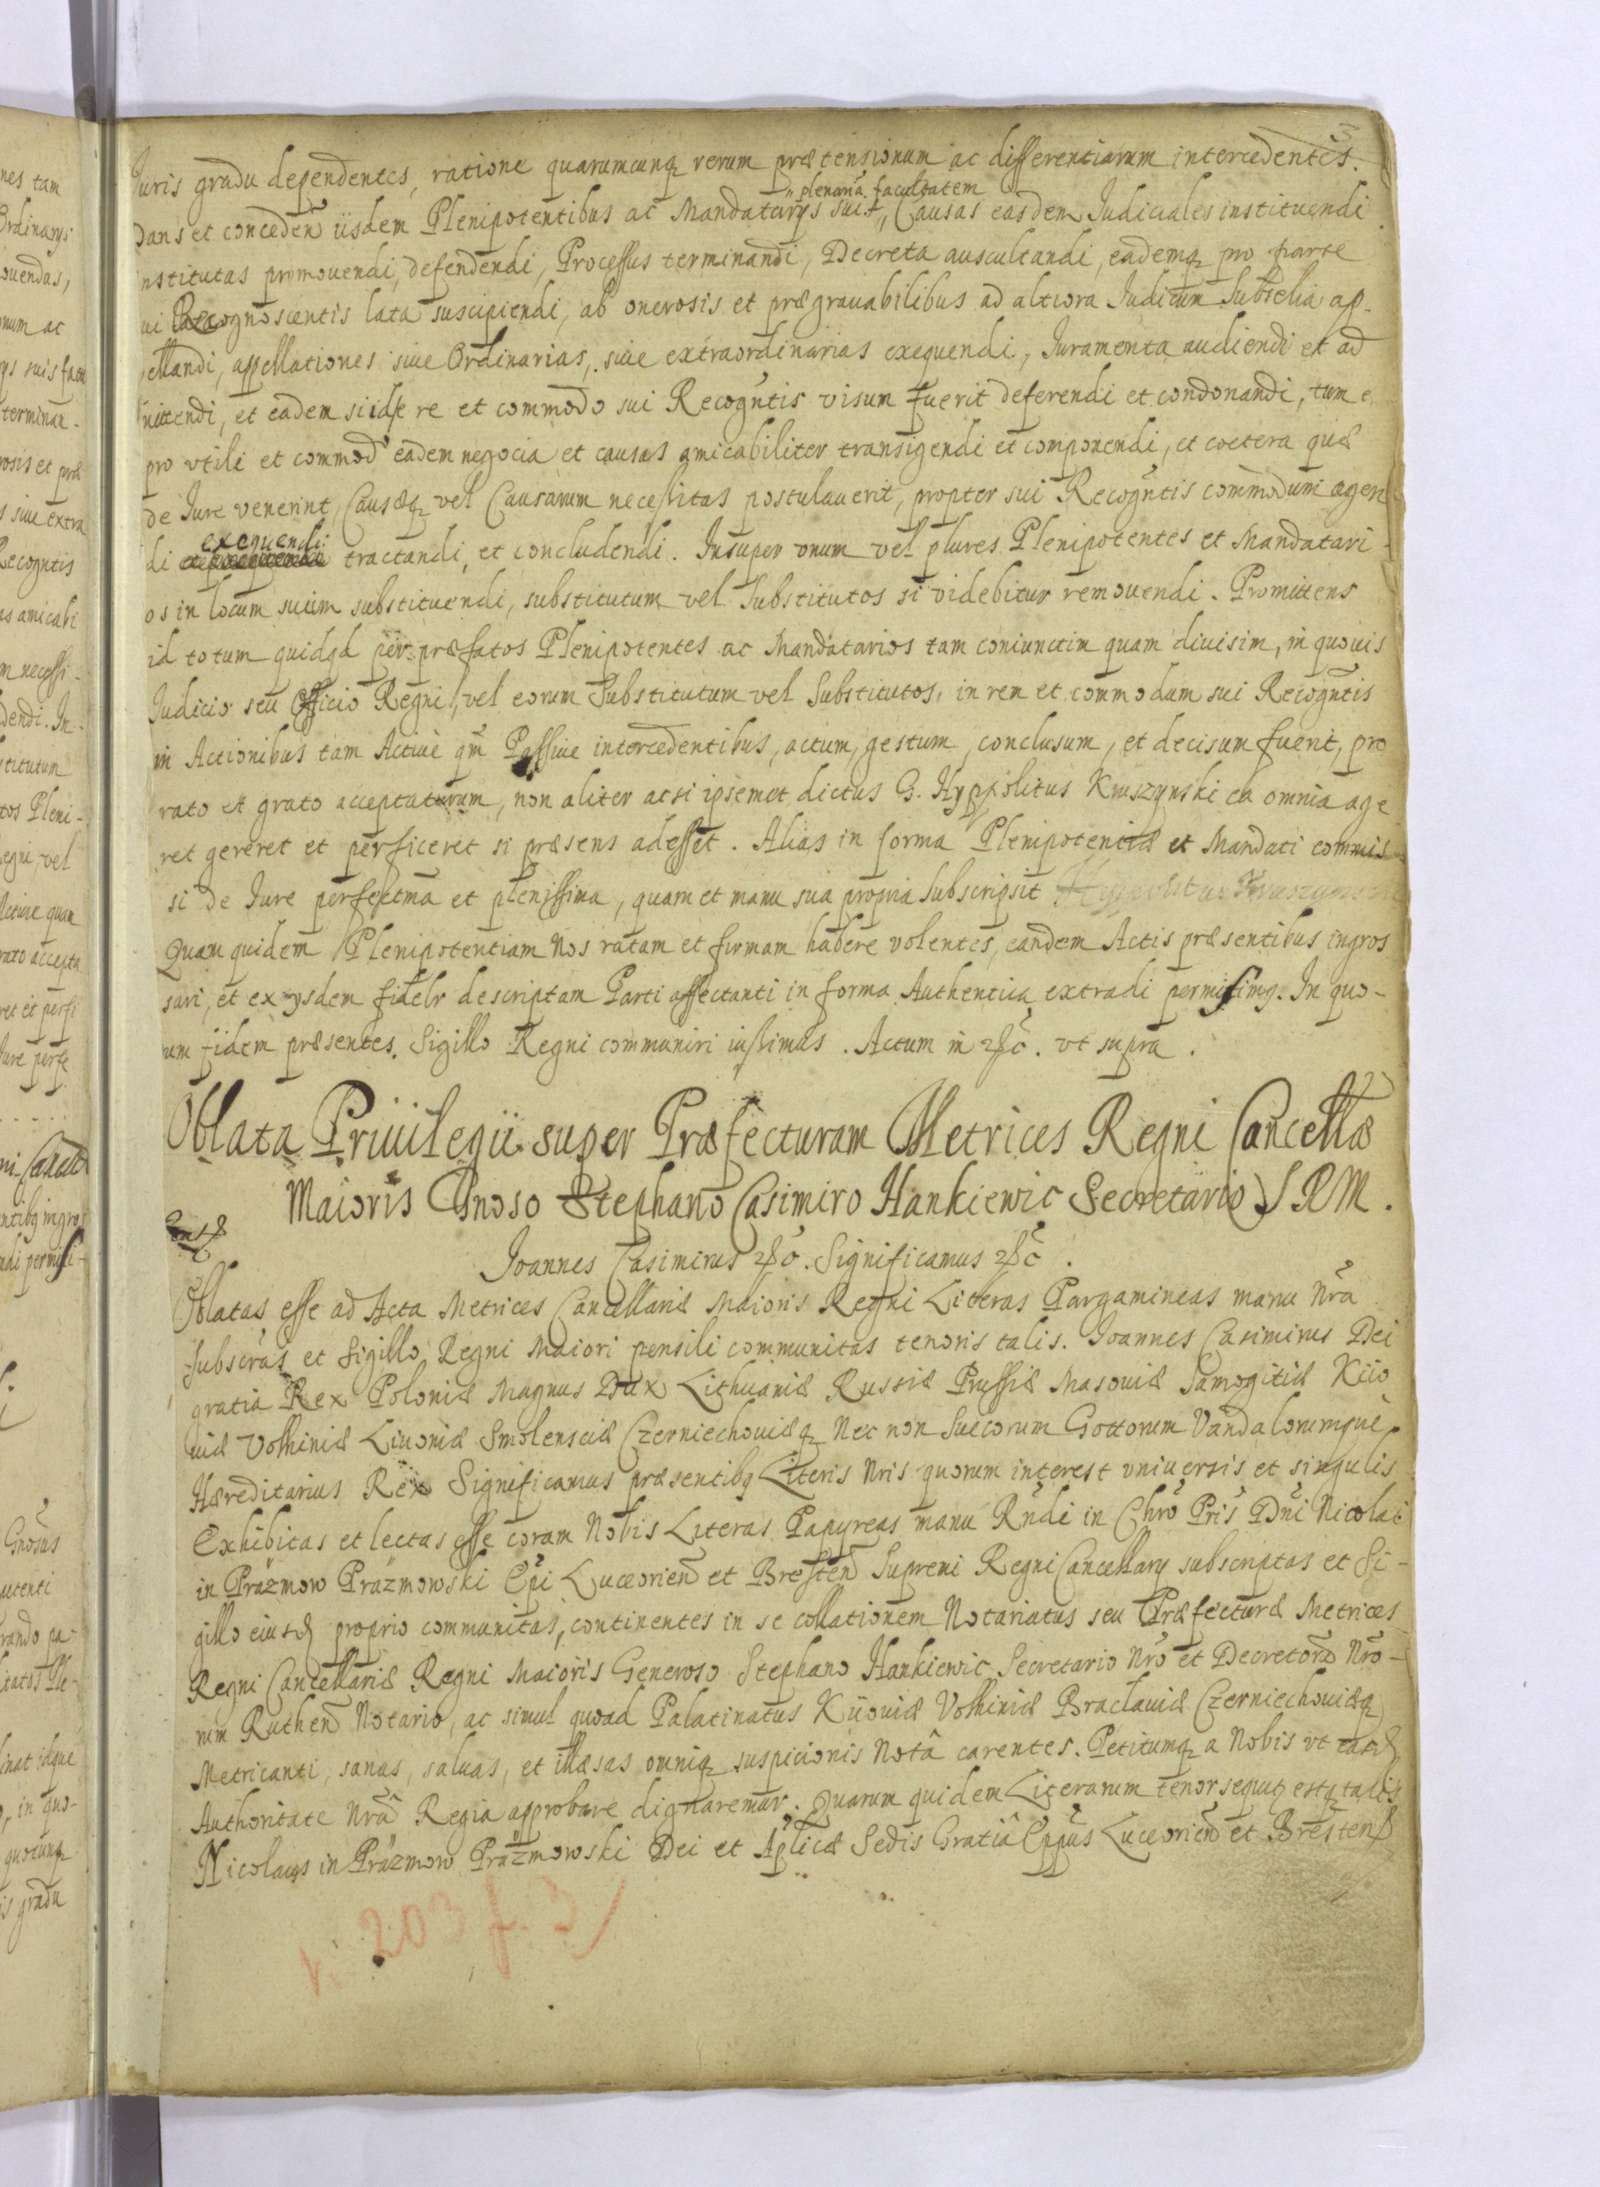 3
Iuris gradu dependentes, ratione quarumcunq rerum prætensionum ac differentiarum intercedentes.
„ plenariã facultatem
Dans et concedeñ iisdem Plenipotentibus ac Mandatarys suis „ Causas easdem Iudiciales instituendi
institutas promouendi, defendendi, Processus terminandi, Decreta auscultandi, eademq pro parte
sui Recognoscentis lata suscipiendi, ab onerosis et prægrauabilibus ad altiora Iudicum Subselia ap-
ellandi, appellationes siue Ordinarias, siue extraordinarias exequendi, Iuramenta audiendi et ad
mittendi, et eadem si id re et commodo sui Recogñtis visum fuerit deferendi et condonandi, tum e
pro vtili et commodo eadem negocia et causas amicabiliter transigendi et componendi, et coetera quæ
de Iure venerint, Causæq vel Causarum necessitas postulauerit, propter sui Recogñtis commodum agen
exequendi
di tractandi, et concludendi. Insuper vnum vel plures Plenipotentes et Mandatari-
os in locum suum substituendi, substitutum vel Substitutos si videbitur remouendi. Promittens
id totum quidqd per præfatos Plenipotentes ac Mandatarios tam coniunctim quam diuisim, in quouis
Iudicio seu Officio Regni, vel eorum Substitutum vel Substitutos, in rem et commodum sui Recogñtis
in Actionibus tam Actiue qm̃ Passiue intercedentibus, actum, gestum, conclusum, et decisum fuerit, pro
rato et grato acceptaturum, non aliter ac si ipsemet dictus G. Hyppolitus Kruszynski ea omnia age
ret gereret et perficeret si præsens adesset. Alias in forma Plenipotentiæ et Mandati commis
si de Iure perfectma et plenissima, quam et manu sua propria subscripsit Hyppolitus Kruszynski
Quam quidem Plenipotentiam Nos ratam et firmam habere volentes, eandem Actis præsentibus ingros
sari, et ex ysdem fidelr descriptam Parti affectanti in forma Authentica extradi permisimq. In quo-
rum fidem præsentes Sigillo Regni communiri iussimus. Actum in &c̃. vt supra.
Oblata Priuilegii super Præfecturam Metrices Regni Cancellæ
Maioris Gnoso Stephano Casimiro Hankiewic Secretario S R M.
Ioannes Casimirus &c̃. Significamus &c̃.
Oblatas esse ad Acta Metrices Cancellariæ Maioris Regni Literas Pargamineas manu Nr̃a
subscr̃as et Sigillo Regni Maiori pensili communitas tenoris talis. Ioannes Casimirus Dei
gratia Rex Poloniæ Magnus Dux Lithuaniæ Russiæ Prussiæ Masouiæ Samogitiæ Kiio
uiæ Volhiniæ Liuoniæ Smolensciæ Czerniechouiæq Nec non Suecorum Gottorum Vandalorumque
Hæreditarius Rex Significamus præsentibq Literis Nris quorum interest vniuersis et singulis
Exhibitas et lectas esse coram Nobis Literas Papyreas manu Rñdi in Chrõ Pris Dñi Nicolai
in Prażmow Prażmowski Epĩ Luceorieñ et Bresteñ Supremi Regni Cancellary subscriptas et Si-
gillo eiusd proprio communitas, continentes in se collationem Notariatus seu Præfecturæ Metrices
Regni Cancellariæ Regni Maioris Generoso Stephano Hankiewic Secretario Nr̃o et Decretorũ Nr̃o-
rum Rutheñ Notario, ac simul quoad Palatinatus Kiiouiæ Volhiniæ Braclauiæ Czerniechouiæq
Metricanti, sanas, saluas, et illæsas omniq suspicionis Notâ carentes. Petitumq a Nobis vt easd
Authoritate Nr̃a Regia approbare dignaremur. Quarum quidem Literarum tenor sequit estq talis
Nicolaus in Prażmow Prażmowski Dei et Aplicæ Sedis Gratiâ Eppũs Luceorieñ et Brestens
203 f. 3